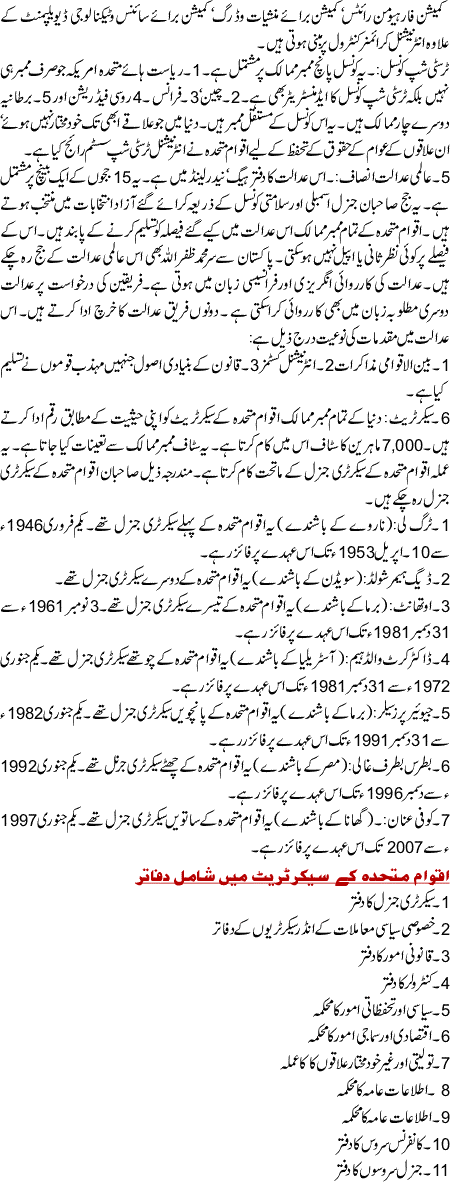 کمیشن فار ہیومن رائٹس' کمیشن برائے منشیات وڈرگ' کمیشن برائے سائنس وٹیکنالوجی ڈیویلپمنٹ کے
علاوہ انٹرنیشنل کرائمنز کنٹرول پر مبنی ہوتی ہیں۔
ٹرسٹی شپ کونسل:۔ یہ کونسل پانچ ممبر ممالک پر مشتمل ہے۔ 1۔ ریاست ہائے متحدہ امریکہ جو صرف ممبر ہی
نہیں بلکہ ٹرسٹی شپ کونسل کا ایڈمنسٹریٹر بھی ہے۔ 2۔ چین' 3۔ فرانس ۔ 4 روسی فیڈریشن اور 5۔ برطانیہ
دوسرے چار ممالک ہیں۔ یہ اس کونسل کے مستقل ممبر ہیں۔ دنیا میں جو علاقے ابھی تک خودمختار نہیں ہوئے'
ان علاقوں کے عوام کے حقوق کے تحفظ کے لیے اقوام متحدہ نے انٹرنیشنل ٹرسٹی شپ سسٹم رائج کیا ہے۔
5۔ عالمی عدالت انصاف:۔ اس عدالت کا دفتر ہیگ' نیدرلینڈ میں ہے۔ یہ 15 ججوں کے ایک بینچ پر مشتمل
ہے۔ یہ جج صاحبان جنرل اسمبلی اور سلامتی کونسل کے ذریعہ کرائے گئے آزاد انتخابات میں منتخب ہوتے
ہیں۔ اقوام متحدہ کے تمام ممبر ممالک اس عدالت میں کیے گئے فیصلہ کو تسلیم کرنے کے پابند ہیں۔ اس کے
فیصلے پر کوئی نظر ثانی یا اپیل نہیں ہوسکتی۔ پاکستان سے سر محمد ظفر اللہ بھی اس عالمی عدالت کے جج رہ چکے
ہیں۔ عدالت کی کارروائی انگریزی اور فرانسیسی زبان میں ہوتی ہے۔ فریقین کی درخواست پر عدالت
دوسری مطلوبہ زبان میں بھی کارروائی کراسکتی ہے۔ دونوں فریق عدالت کا خرچ ادا کرتے ہیں۔ اس
عدالت میں مقدمات کی نوعیت درج ذیل ہے:
1۔ بین الاقوامی مذاکرات 2۔ انٹرنیشنل کسٹمز 3۔ قانون کے بنیادی اصول جنہیں مہذب قوموں نے تسلیم
کیا ہے۔
6۔ سیکرٹریٹ: دنیا کے تمام ممبر ممالک اقوام متحدہ کے سیکرٹریٹ کو اپنی حیثیت کے مطابق رقم ادا کرتے
ہیں۔ 7,000 ماہرین کا سٹاف اس میں کام کرتا ہے۔ یہ سٹاف ممبر ممالک سے تعینات کیا جاتا ہے۔ یہ
عملہ اقوام متحدہ کے سیکرٹری جنرل کے ماتحت کام کرتا ہے۔ مندرجہ ذیل صاحبان اقوام متحدہ کے سیکرٹری
جنرل رہ چکے ہیں۔
1۔ ٹرگ لی: (ناروے کے باشندے) یہ اقوام متحدہ کے پہلے سیکرٹری جنرل تھے۔ یکم فروری 1946ء
سے 10۔ اپریل 1953ء تک اس عہدے پر فائز رہے۔
2۔ ڈیگ ہیمر شولڈ: (سویڈن کے باشندے) یہ اقوام متحدہ کے دوسرے سیکرٹری جنرل تھے۔
3۔ اوتھانٹ: (برما کے باشندے) یہ اقوام متحدہ کے تیسرے سیکرٹری جنرل تھے۔ 3 نومبر 1961ء سے
31 دسمبر 1981ء تک اس عہدے پر فائز رہے۔
4۔ ڈاکٹر کرٹ والڈ ہیم: (آسٹریلیا کے باشندے) یہ اقوام متحدہ کے چوتھے سیکرٹری جنرل تھے۔ یکم جنوری
1972ء سے 31 دسمبر 1981ء تک اس عہدے پر فائز رہے۔
5۔ جیوئیر پرزسیلر: (برما کے باشندے) یہ اقوام متحدہ کے پانچویں سیکرٹری جنرل تھے۔ یکم جنوری 1982ء
سے 31 دسمبر 1991ء تک اس عہدے پر فائز رہے۔
6۔ بطرس بطرف غالی: (مصر کے باشندے) یہ اقوام متحدہ کے چھٹے سیکرٹری جرنل تھے۔ یکم جنوری 1992
ء سے دسمبر 1996ء تک اس عہدے پر فائز رہے۔
7۔ کوفی عنان:۔ (گھانا کے باشندے) یہ اقوام متحدہ کے ساتویں سیکرٹری جنرل تھے۔ یکم جنوری 1997
ء سے 2007 تک اس عہدے پر فائز رہے۔
اقوام متحدہ کے سیکرٹریٹ میں شامل دفاتر
1۔ سیکرٹری جنرل کا دفتر
2۔ خصوصی سیاسی معاملات کے انڈر سیکرٹریوں کے دفاتر
3۔ قانونی امور کا دفتر
4۔ کنٹرولر کا دفتر
5۔ سیاسی اور تحفظاتی امور کا محکمہ
6۔ اقتصادی اور سماجی امور کا محکمہ
7۔ تولیتی اور غیر خودمختار علاقوں کا کا عملہ
8 ۔ اطلاعات عامہ کا محکمہ
9۔ اطلاعات عامہ کا محکمہ
10۔ کانفرنس سروس کا دفتر
11۔ جنرل سروسوں کا دفتر